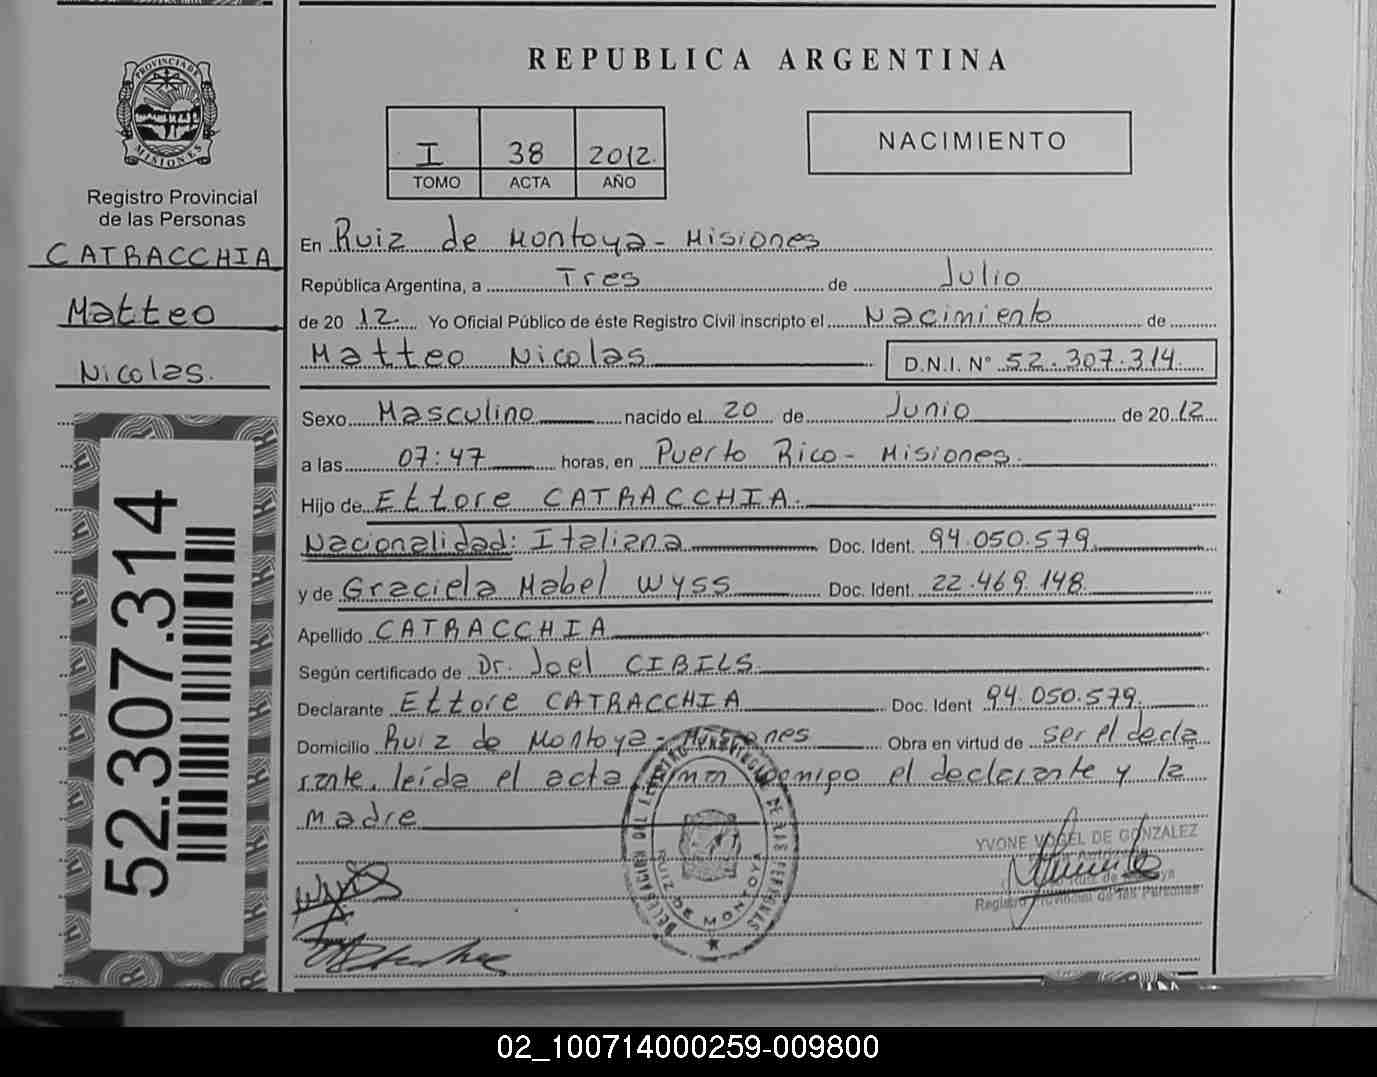 REPUBLICA ARGENTINA
PROVINCIA DE
MISIONES
Registro Provincial
de las Personas
CATRACCHIA
Matteo
Nicolas.
52.307.314
I 38 2012.
TOMO ACTA AÑO
NACIMIENTO
En Ruiz de Montoya - Misiones
República Argentina, a Tres de Julio
de 20 12. Yo Oficial Público de éste Registro Civil inscripto el Nacimiento de
Matteo Nicolas D.N.I. Nº 52.307.314.
Sexo Masculino nacido el 20 de Junio de 20 12
a las 07:47 horas, en Puerto Rico - Misiones.
Hijo de Ettore CATRACCHIA.
Nacionalidad: Italiana Doc. Ident. 94.050.579.
y de Graciela Mabel Wyss Doc. Ident. 22.469.148.
Apellido CATRACCHIA
Según certificado de Dr. Joel CIBILS.
Declarante Ettore CATRACCHIA Doc. Ident 94.050.579.
Domicilio Ruiz de Montoya - Misiones Obra en virtud de ser el decla
rante, leída el acta firman conmigo el declarante y la
madre
DELEGACION DEL REGISTRO PROVINCIAL DE LAS PERSONAS
RUIZ DE MONTOYA
YVONE VOGEL DE GONZALEZ
Registro Provincial de las Personas
02_100714000259-009800